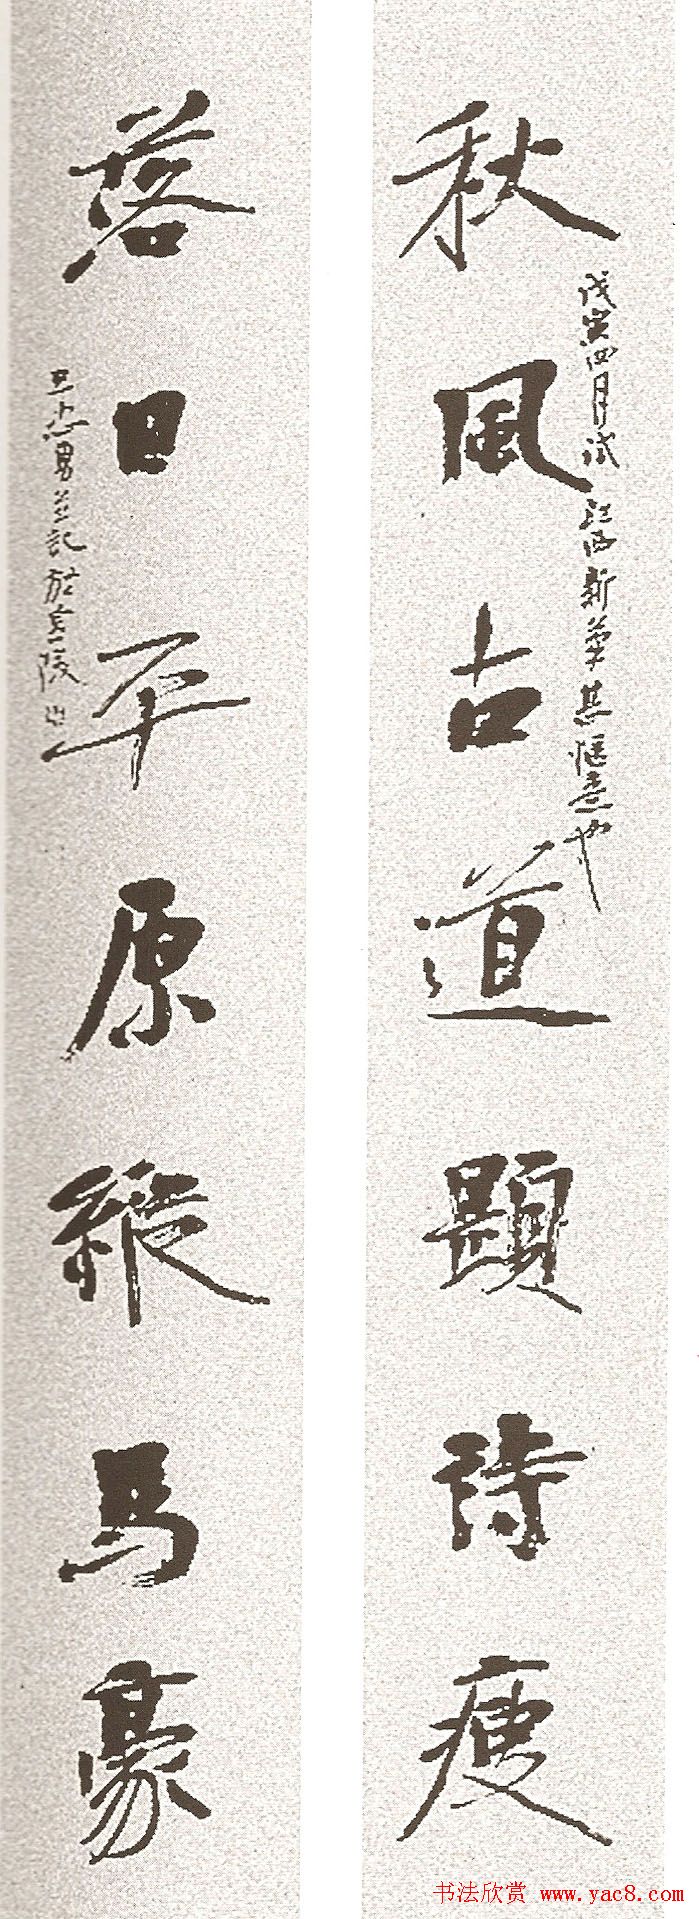 秋風古道題詩瘦
戊寅四月試江西新筆甚惬意也
落日平原縱馬豪
王志男並記於金陵
书法欣赏 www.yac8.com